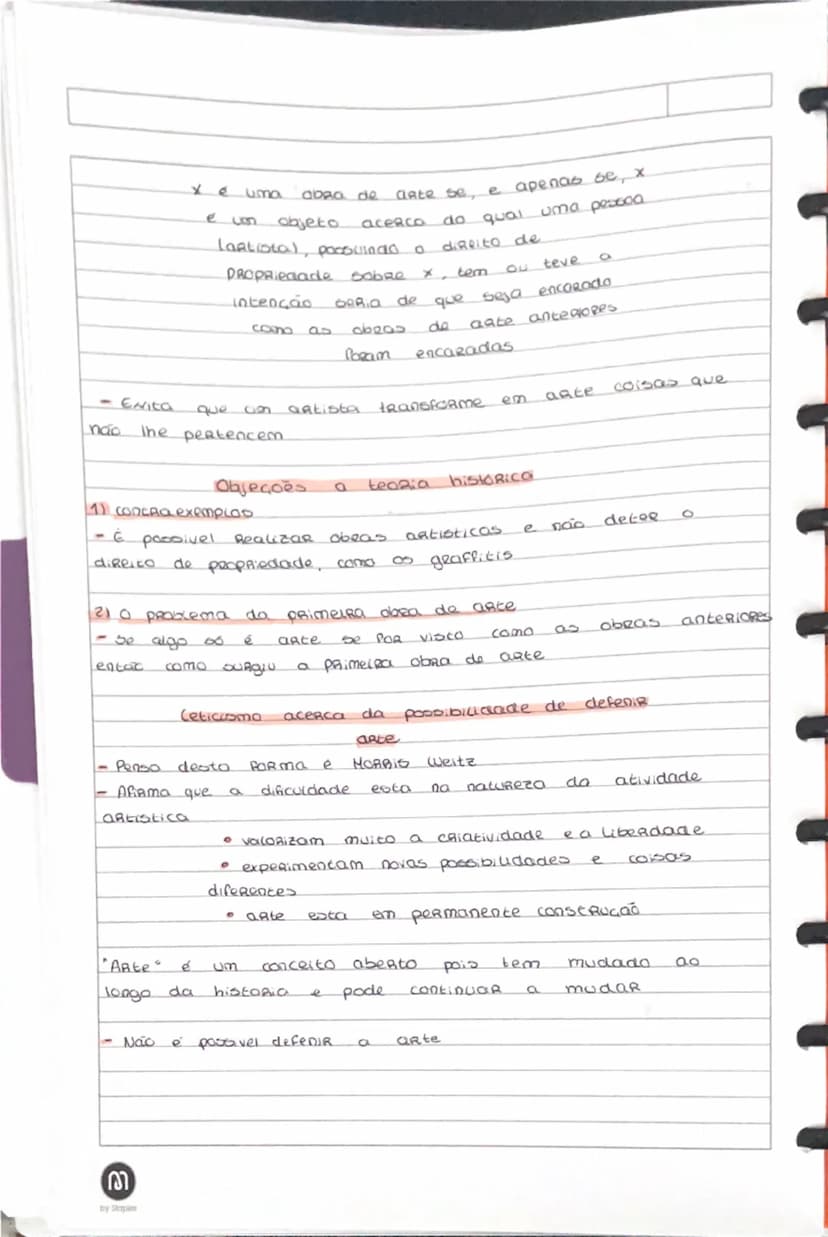 x é uma obra de arte se, e apenas se, x
é um objeto acerca do qual uma pessoa
(artista), possuindo o direito de
propriedade sobre x, tem ou teve a
intenção séria de que seja encarado
como as obras de arte anteriores
foram encaradas
- Evita que um artista transforme em arte coisas que
não lhe pertencem
Objeções a teoria histórica
1) contraexemplos
- É possivel realizar obras artísticas e não deter o
direito de propriedade, como os graffitis
2) O problema da primeira obra de arte
- Se algo só é arte se for visto como as obras anteriores
entao como surgiu a primeira obra de arte
Ceticismo acerca da possibilidade de defenir
arte
- Pensa desta forma é Morris Weitz
- Afirma que a dificuldade esta na natureza da atividade
artística
• valorizam muito a criatividade e a liberdade
• experimentam novas possibilidades e coisas
diferentes
• arte esta em permanente construção
"Arte" é um conceito aberto pois tem mudado ao
longo da historia e pode continuar a mudar
- Não é possivel defenir a arte
by Staples